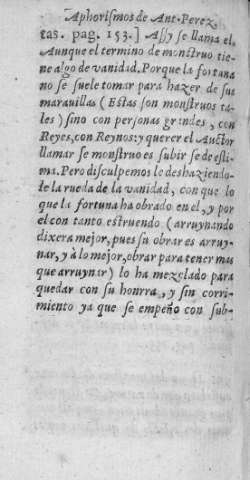 Aphorismos de Ant. Perez,
tas. pag. 153.] Assy se llama el.
Aunque el termino de monstruo tie-
ne algo de vanidad. Porque la fortuna
no se suele tomar para hazer de sus
marauillas (Estas son monstruos ta-
les) sino con personas grandes, con
Reyes, con Reynos: y querer el Auctor
llamarse monstruo es subirse de esti-
ma. Pero disculpemosle deshaziendo-
le la rueda de la vanidad, con que lo
que la fortuna ha obrado en el, y por
el con tanto estruendo (arruynando
dixera mejor, pues su obrar es arruy-
nar, y à lo mejor, obrar para tener mas
que arruynar) lo ha mezclado para
quedar con su honrra, y sin corri-
miento ya que se empeño con sub-